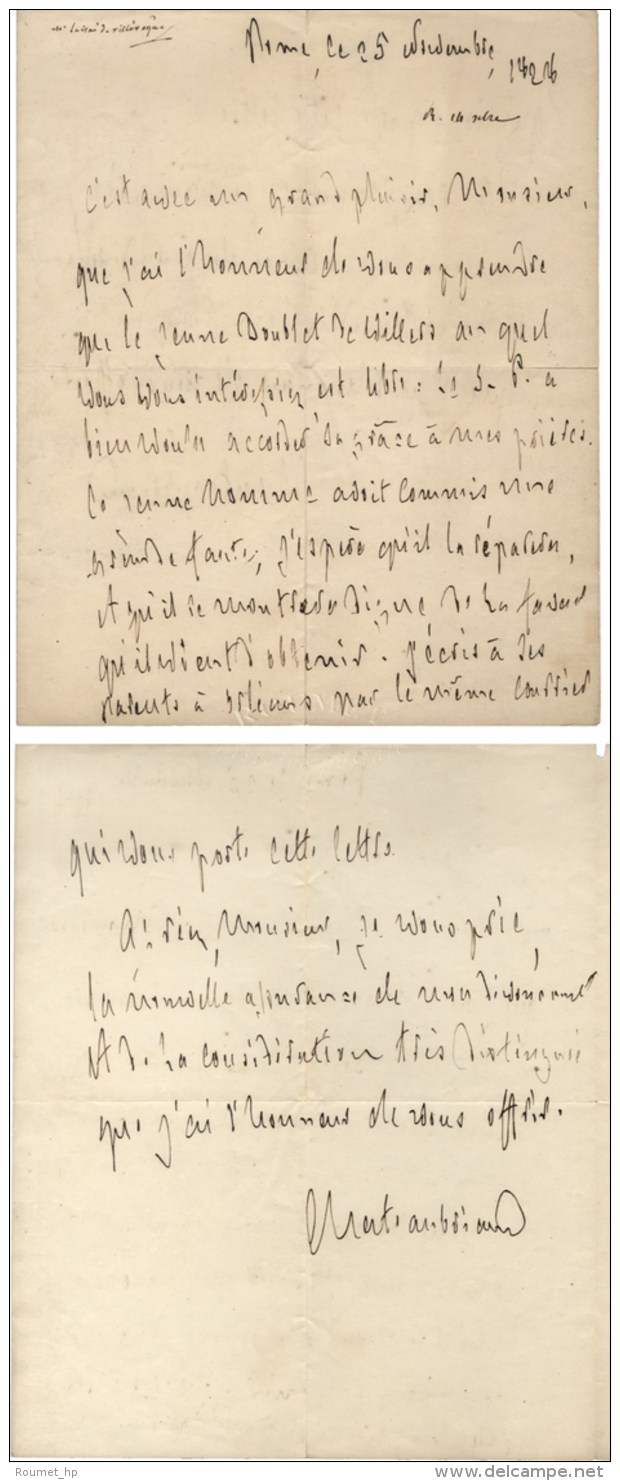 Mr Laisné de Villévêque
Rome, ce 25 Novembre, 1828
C'est avec un grand plaisir, Monsieur,
que j'ai l'honneur de vous apprendre
que le jeune Doublet de Villers au quel
vous vous intéressiez est libre : Le S. P. a
bien voulu accorder sa grâce à mes prières.
Ce jeune homme avoit commis une
grande faute, j'espère qu'il la réparera,
et qu'il se montrera digne de la faveur
qu'il vient d'obtenir. J'écris à ses
parents à Orléans par le même courrier
qui vous porte cette lettre.
Agréez, Monsieur, je vous prie,
la nouvelle assurance de mon dévouement
et de la considération très distinguée
que j'ai l'honneur de vous offrir.
Chateaubriand
Roumet_hp
www.delcampe.net